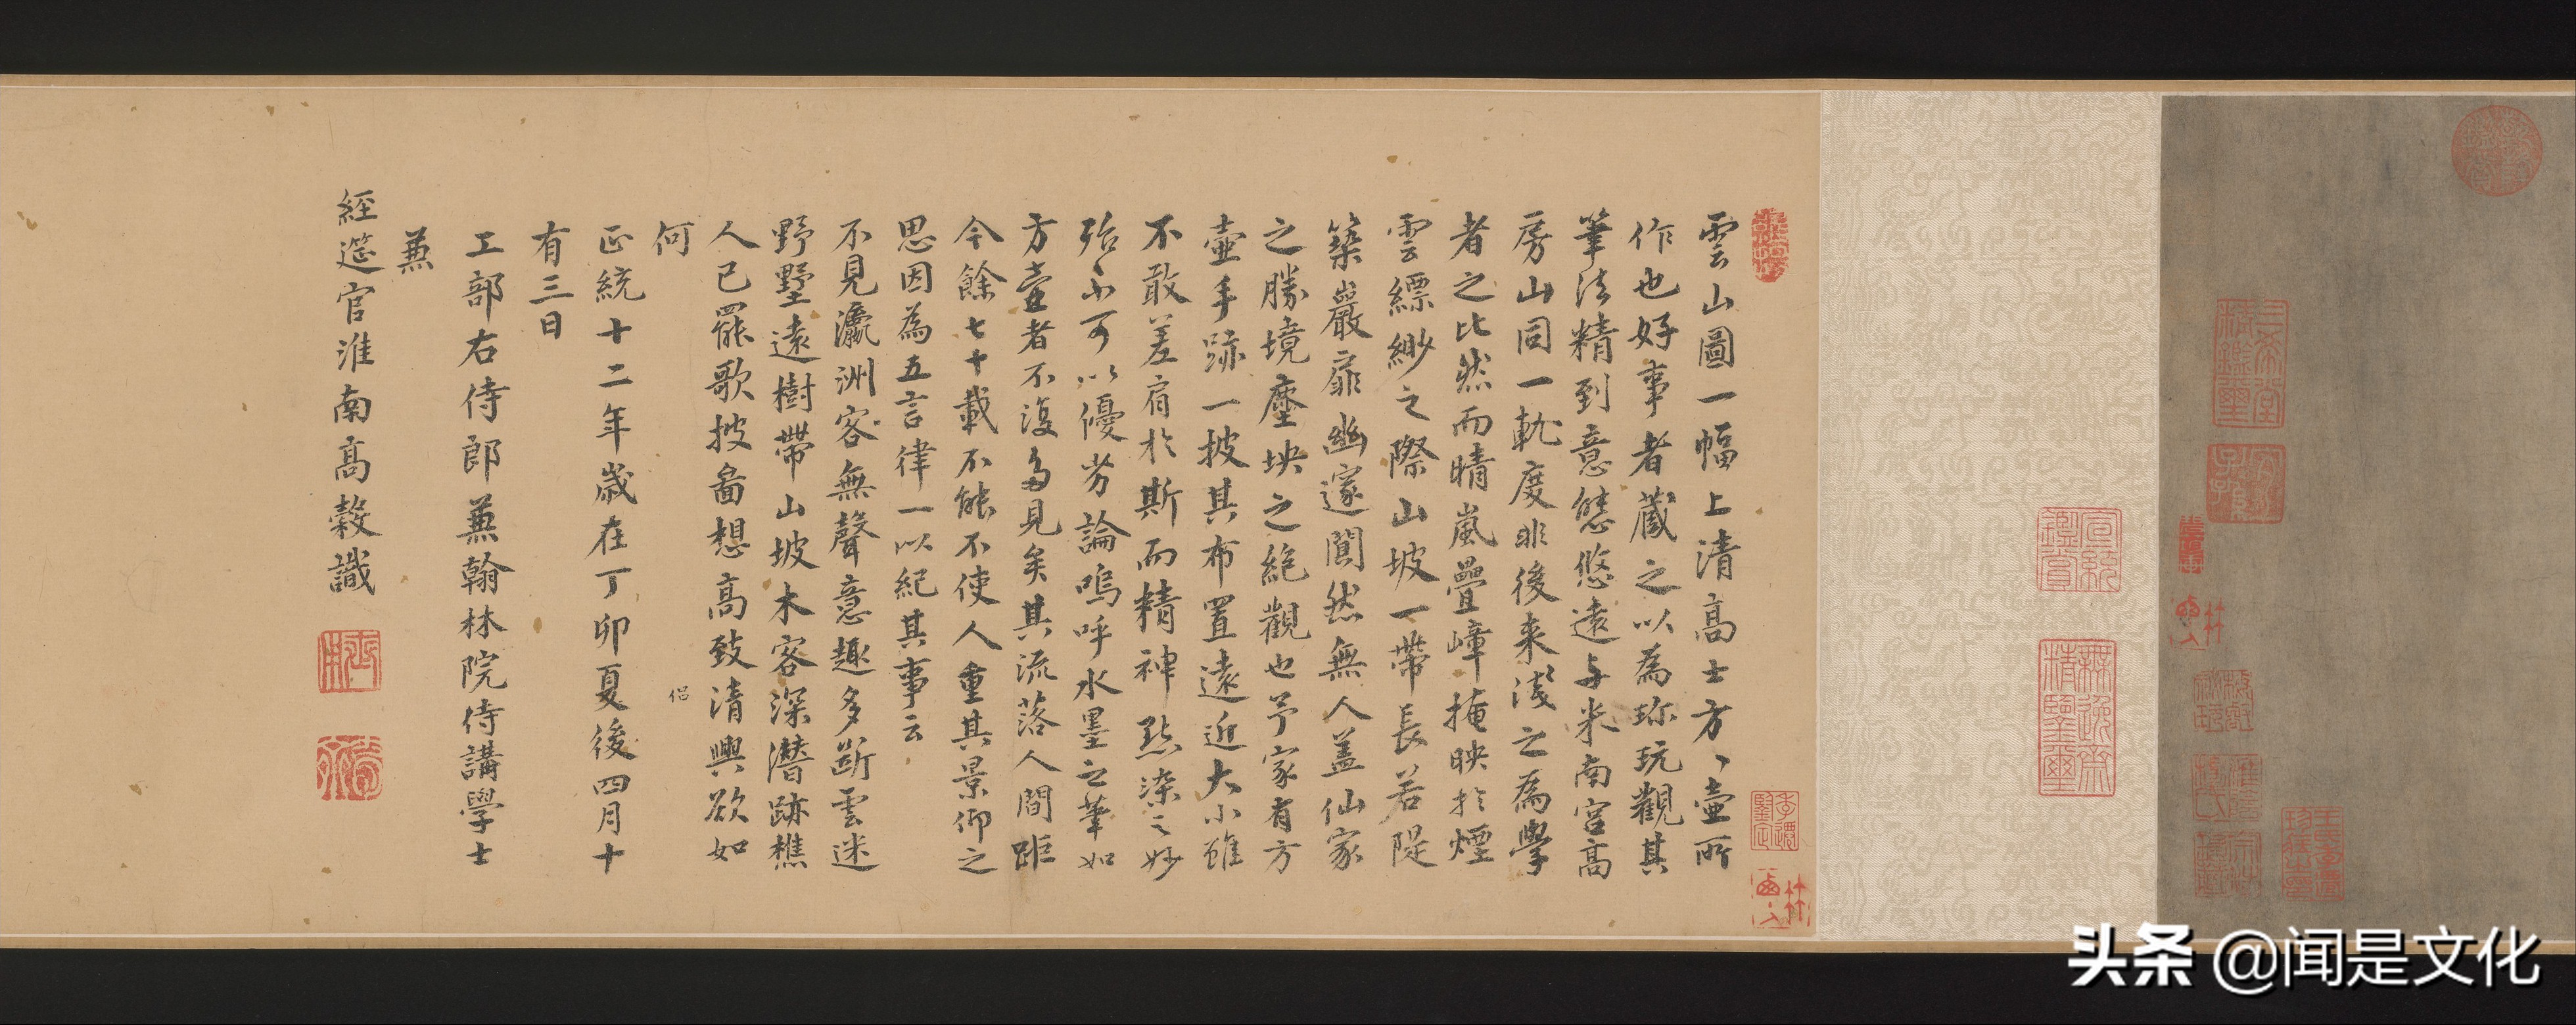 雲山圖一幅上清高士方、壷所
作也好事者蔵之以為珎玩觀其
筆法精到意態悠遠与米南宮高
房山同一軌度非後来淺之為學
者之比然而晴嵐疊嶂掩映扵煙
雲縹緲之際山坡一帶長若隄
築巖扉幽邃闃然無人盖仙家
之勝境塵坱之絶觀也予家有方
壷手跡一披其布置遠近大小雖
不敢差肩扵斯而精神㸃染之妙
殆不可以優劣論嗚呼水墨之筆如
方壷者不復多見矣其流落人間距
今餘七十載不能不使人重其景仰之
思因為五言律一以紀其事云
不見瀛洲客無聲意趣多斷雲迷
野墅遠樹帶山坡木客深潛跡樵
人已罷歌披啚想高致清興欲如
何
侣
正統十二年歲在丁卯夏後四月十
有三日
工部右侍郎蒹翰林院侍講學士
蒹
經筵官淮南高穀識
三希堂精鑑璽
宜子孫
宣統鑑賞
無逸齋精鑒璽
头条 @闻是文化